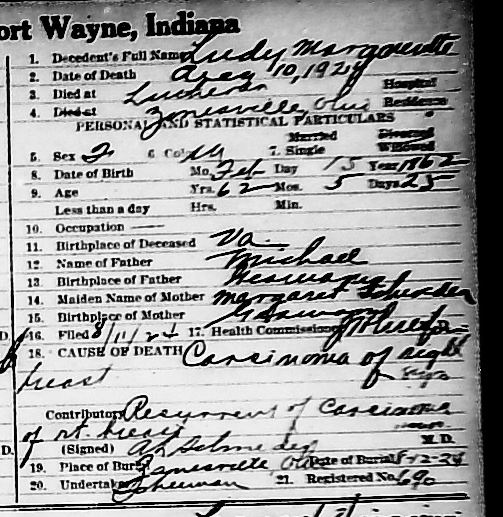 ort Wayne, Indiana
1. Decedent's Full Name Ludy Marguerite
2. Date of Death Aug 10, 1924
3. Died at Lutheran Hospital
4. Died at Zanesville, Ohio Residence
PERSONAL AND STATISTICAL PARTICULARS
Married Divorced
5. Sex F 6 Col W 7. Single Widowed
8. Date of Birth Mo. Feb Day 15 Year 1862
9. Age Yrs. 62 Mos. 5 Days 25
Less than a day Hrs. Min.
10. Occupation
11. Birthplace of Deceased Va
12. Name of Father Michael
13. Birthplace of Father Germany
14. Maiden Name of Mother Margaret
15. Birthplace of Mother Germany
D. 16. Filed 8/11/24 17. Health Commissioner
18. CAUSE OF DEATH Carcinoma of right
breast
Contributory Recurrent of Carcinoma
of rt. breast
D. (Signed) M. D.
19. Place of Burial Zanesville, Ohio Date of Burial 8-12-24
20. Undertaker 21. Registered No. 690